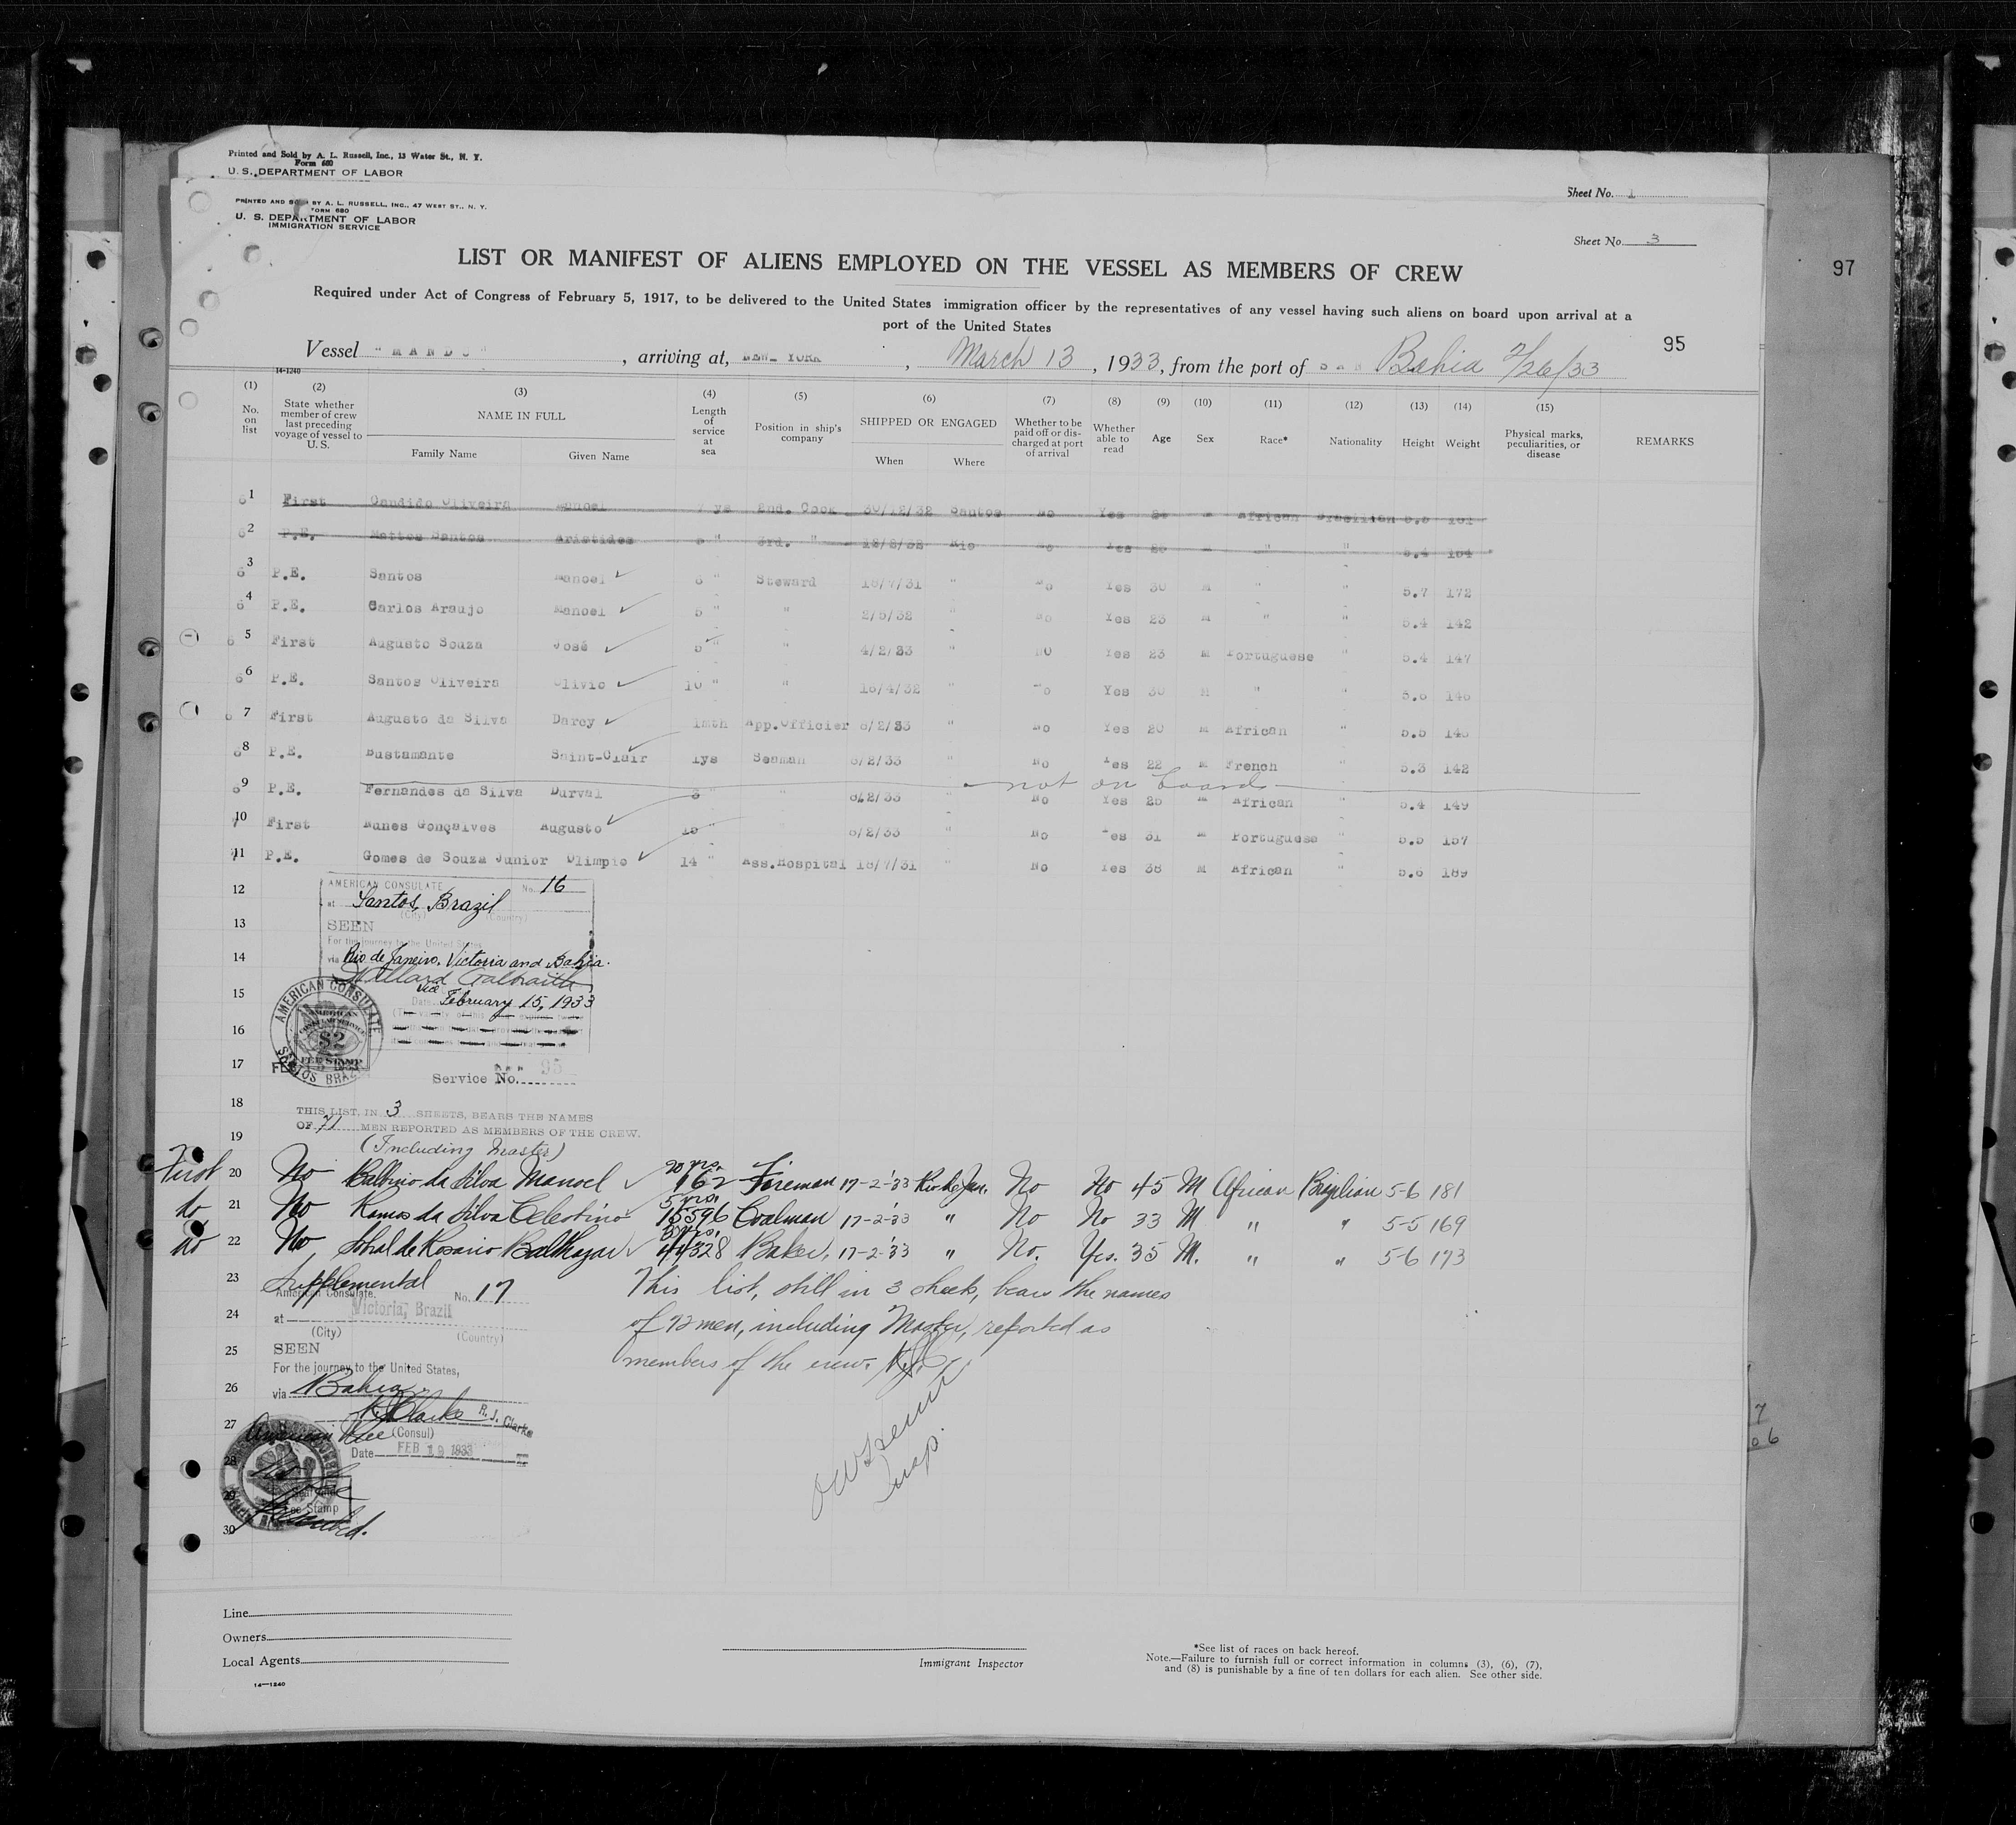 Printed and Sold by A. L. Russell, Inc., 13 Water St., N. Y.
Form 680
U. S. DEPARTMENT OF LABOR
Sheet No. 1
PRINTED AND SOLD BY A. L. RUSSELL, INC., 47 WEST ST., N. Y.
FORM 680
U. S. DEPARTMENT OF LABOR
IMMIGRATION SERVICE
Sheet No. 3
LIST OR MANIFEST OF ALIENS EMPLOYED ON THE VESSEL AS MEMBERS OF CREW
97
Required under Act of Congress of February 5, 1917, to be delivered to the United States immigration officer by the representatives of any vessel having such aliens on board upon arrival at a
port of the United States
95
Vessel "MANDU", arriving at, NEW YORK, March 13, 1933, from the port of Bahia 2/26/33
14-1240
(1) (2) (3) (4) (5) (6) (7) (8) (9) (10) (11) (12) (13) (14) (15)
No. on list State whether member of crew last preceding voyage of vessel to U. S. NAME IN FULL Family Name Given Name Length of service at sea Position in ship's company SHIPPED OR ENGAGED When Where Whether to be paid off or discharged at port of arrival Whether able to read Age Sex Race* Nationality Height Weight Physical marks, peculiarities, or disease REMARKS
1 First Candido Oliveira Manoel ys 2nd. Cook 30/12/32 Santos No Yes M African Brazilian 5.5 161
2 P.E. Mattos Santos Aristides " 3rd. " 12/2/32 Rio No Yes M " " 5.4 164
3 P.E. Santos Manoel 6 " Steward 18/7/31 " No Yes 30 M " " 5.7 172
4 P.E. Carlos Araujo Manoel 5 " " 2/5/32 " No Yes 23 M " " 5.4 142
5 First Augusto Souza José 5 " " 4/2/33 " NO Yes 23 M Portuguese " 5.4 147
6 P.E. Santos Oliveira Olivio 10 " " 18/4/32 " No Yes 30 M " " 5.6 146
7 First Augusto da Silva Darcy 1mth App.Officier 8/2/33 " No Yes 20 M African " 5.5
8 P.E. Bustamante Saint-Clair 1ys Seaman 8/2/33 " No Yes 22 M French " 5.3 142
not on board
9 P.E. Fernandes da Silva Durval 8 " " 8/2/33 " No Yes 25 M African " 5.4 149
10 First Nunes Gonçalves Augusto 15 " 8/2/33 " No Yes 31 M Portuguese " 5.5 157
11 P.E. Gomes de Souza Junior Olimpio 14 " Ass.Hospital 18/7/31 " No Yes 38 M African " 5.6 189
12
AMERICAN CONSULATE No. 16
at Santos, Brazil
(City) (Country)
13
SEEN
For the journey to the United States
14
via Rio de Janeiro, Victoria and Bahia.
Willard Galbraith
Vice
15
Date February 15, 1933
AMERICAN CONSULATE
SANTOS BRAZIL
AMERICAN CONSULAR SERVICE
$2
FEE STAMP
16
17
Service No. 95
18
THIS LIST, IN 3 SHEETS, BEARS THE NAMES
OF 71 MEN REPORTED AS MEMBERS OF THE CREW.
19
(Including Master)
First 20 No Balbino da Silva Manoel 20 yrs. 162 Fireman 17-2-'33 Rio de Jan. No No 45 M African Brazilian 5-6 181
do 21 No Ramos da Silva Celestino 5 yrs. 15596 Coalman 17-2-'33 " No No 33 M " " 5-5 169
do 22 No Sobral de Rosario Balthazar 3 yrs. 44328 Baker, 17-2-'33 " No. Yes. 35 M. " " 5-6 173
23
Supplemental
American Consulate. No. 17
This list, still in 3 sheets, bears the names
24
at Victoria, Brazil
(City) (Country)
of 72 men, including Master, reported as
25
SEEN
members of the crew.
For the journey to the United States,
26
via Bahia
27
R. J. Clarke
American Vice (Consul)
Date FEB 19 1933
28
No Fee
29
Fee Stamp
30
Insp.
Line
Owners
Local Agents
14—1240
Immigrant Inspector
*See list of races on back hereof.
Note.—Failure to furnish full or correct information in columns (3), (6), (7),
and (8) is punishable by a fine of ten dollars for each alien. See other side.